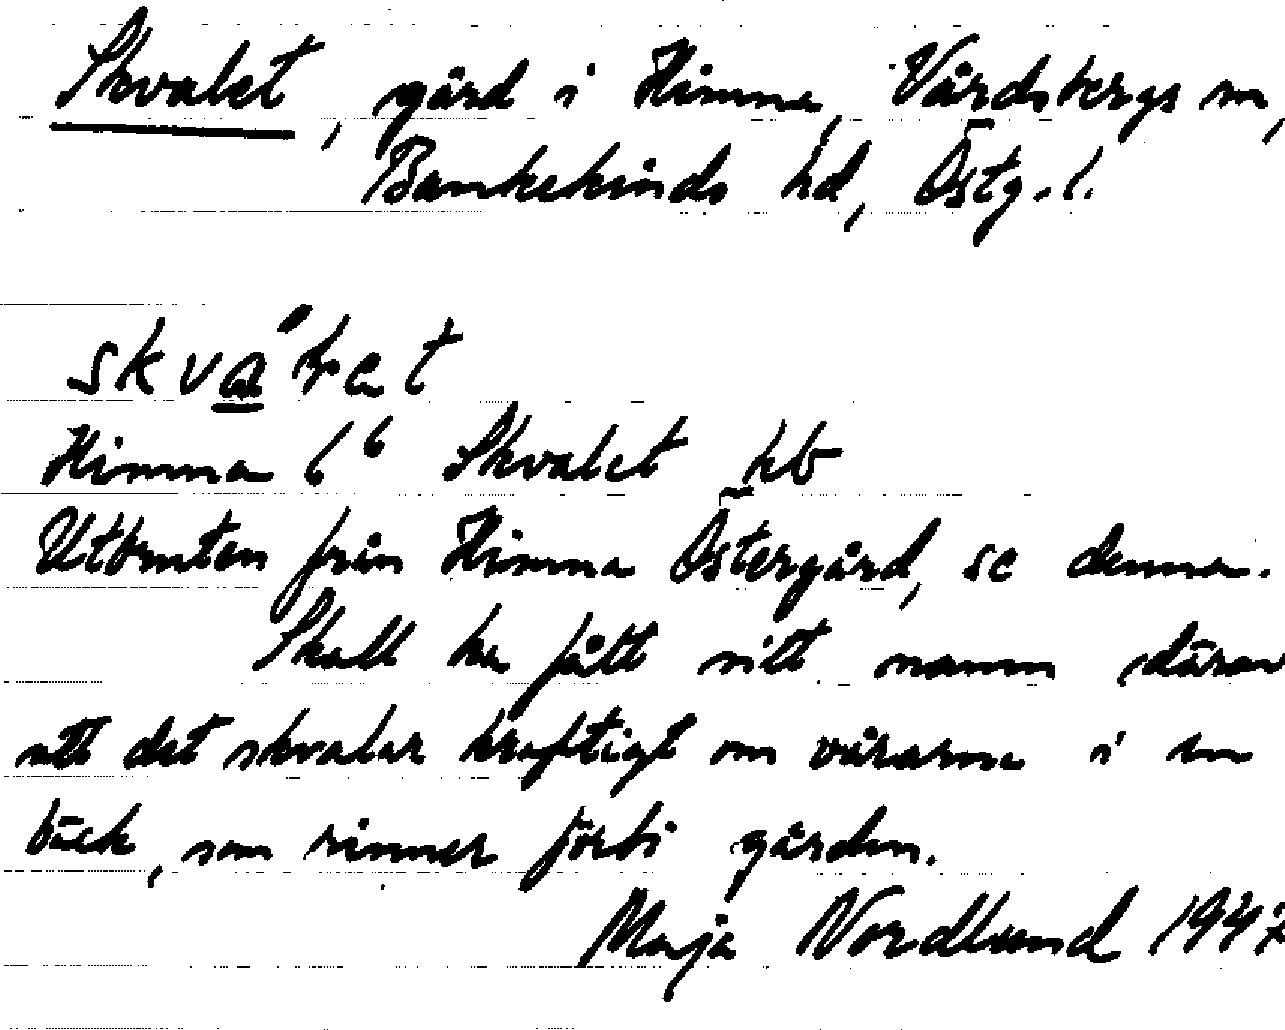 Skvalet, gård i Himna, Vårdsbergs sn,
Bankekinds hd, Östg. l.
skva´let
Himna 6⁶ Skvalet kb
Utbruten från Himna Östergård, se denna.
Skall ha fått sitt namn därav
att det skvalar kraftigt om vårarna i en
bäck, som rinner förbi gården.
Maja Nordlund 1947